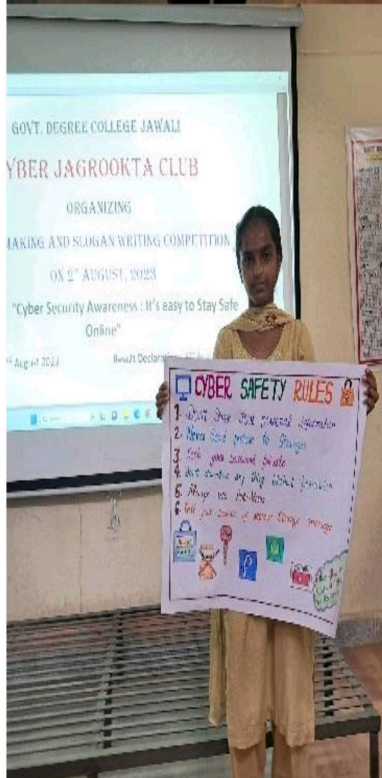 GOVT. DEGREE COLLEGE JAWALI
YBER JAGROOKTA CLUB
ORGANIZING
MAKING AND SLOGAN WRITING COMPETITION
ON 2ND AUGUST, 2023
"Cyber Security Awareness : It's easy to Stay Safe
Online"
August 2023
Result Declaration
CYBER SAFETY RULES
1. Don't Share Your personal information
2. Never Send picture to Stranger
3. Keep your password private
4. Don't download any thing without permission
5. Always use Anti-Virus
6. Tell your parents if receive Strange message